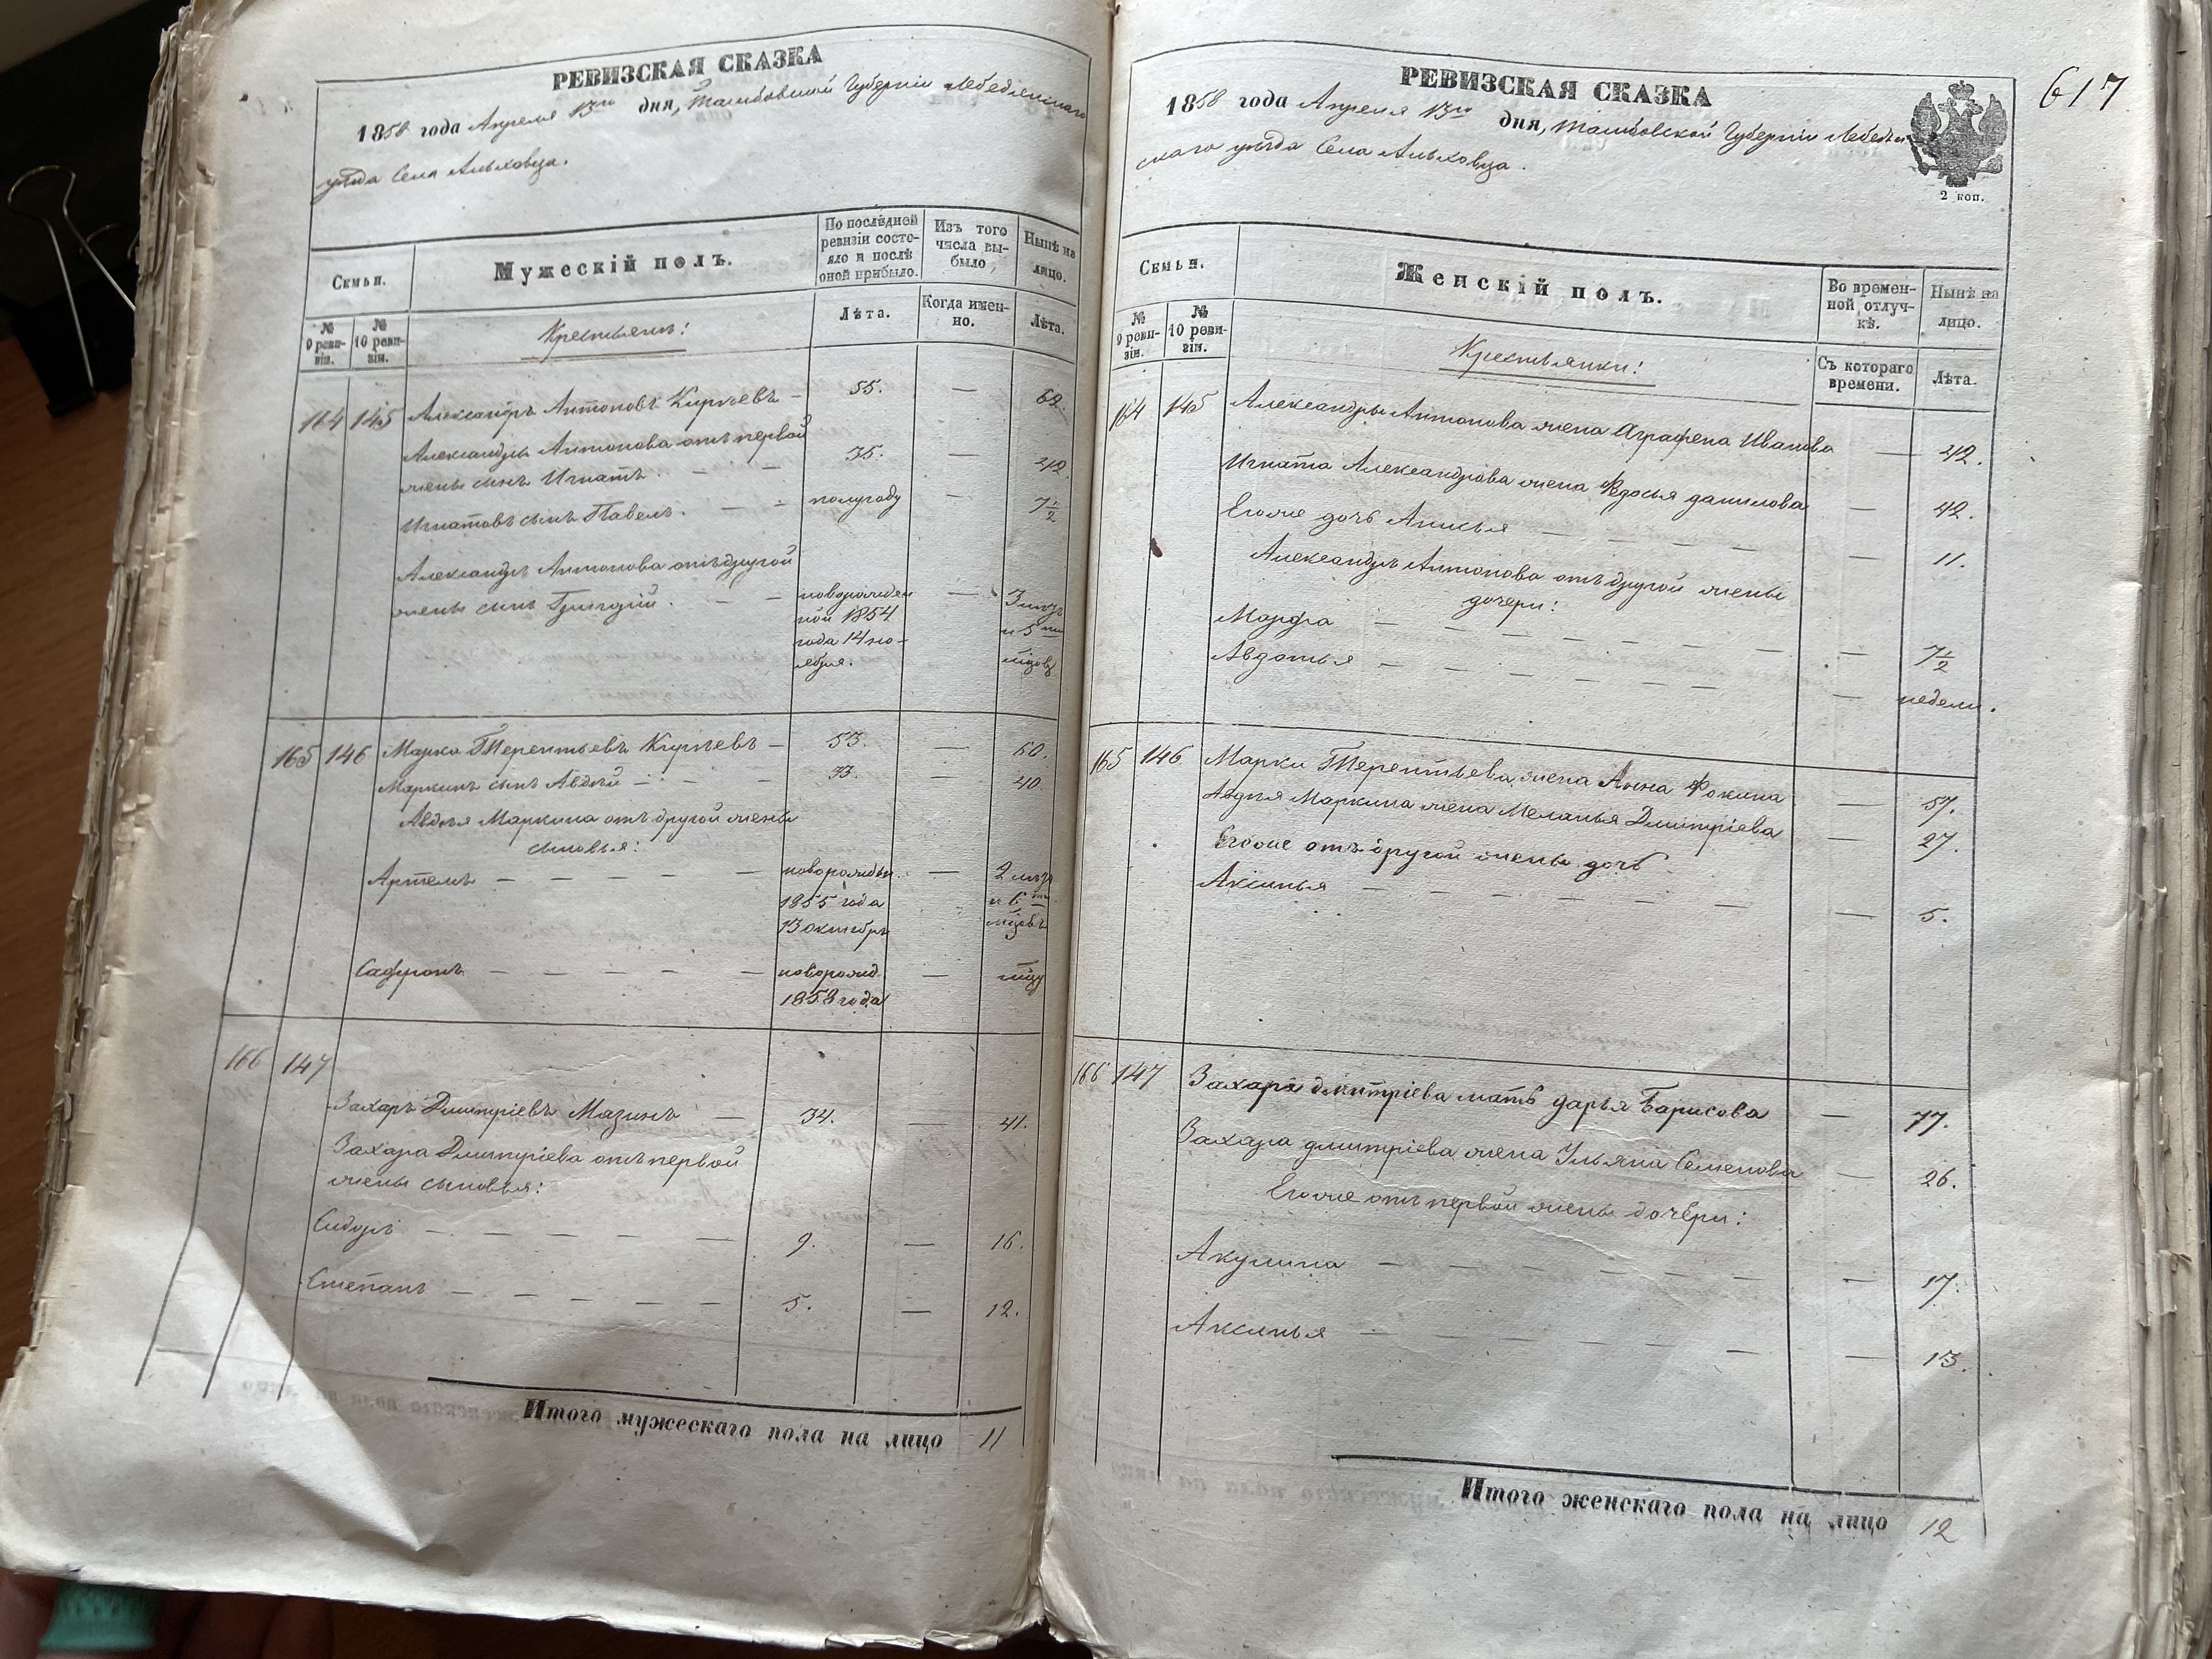 РЕВИЗСКАЯ СКАЗКА
1858 года Апреля 13го дня, Тамбовской Губернiи Лебедянскаго
уѣзда Села Ольховца.
Семьи.
Мужескiй полъ.
По последней ревизiи состояло и послѣ оной прибыло.
Изъ того числа выбыло
Нынѣ на лицо.
№ 9 ревизiи.
№ 10 ревизiи.
Крестьяне:
Лѣта.
Когда именно.
Лѣта.
164 145 Александръ Антоновъ Кирѣевъ — 55. — 62.
Александры Антонова отъ первой
жены сынъ Игнатъ. — — 35. — 42
Игнатовъ сынъ Павелъ. — — полугоду — 7½
Александръ Антонова отъ другой
жены сынъ Григорiй. — — новорожден —
ной 1854
года 14 но-
ября.
165 146 Марко Терентьевъ Кирѣевъ — 53. — 60.
Маркинъ сынъ Авдѣй — — — 33. — 40.
Авдѣя Маркина отъ другой жены
сыновья:
Артемъ — — — — — новорожден. —
1855 года
13 октября
Сафронъ — — — — — новорожд. — мѣцу
1858 года
166 147
Захаръ Дмитрiевъ Мазинъ — 34. — 41.
Захара Дмитрiева отъ первой
жены сыновья:
Сидоръ — — — — — 9. — 16.
Степанъ — — — — — 5. — 12.
Итого мужескаго пола на лицо 11
617
РЕВИЗСКАЯ СКАЗКА
1858 года Апреля 13го дня, Тамбовской Губернiи Лебедян
скаго уѣзда Села Ольховца.
2 коп.
Семьи.
Женскiй полъ.
Во временной отлучкѣ.
Нынѣ на лицо.
№ 9 ревизiи.
№ 10 ревизiи.
Крестьянки:
Съ котораго времени.
Лѣта.
164 145 Александры Антонова жена Аграфена Иванова — 42.
Игната Александрова жена Ѳедосья данилова — 42.
Егоже дочь Анисья — — — — — 11.
Александръ Антонова отъ другой жены
дочери:
Марфа — — — — — — 7½
Авдотья — — — — — — недели.
165 146 Марки Терентьева жена Анна Фокина — 57.
Авдѣя Маркина жена Меланья Дмитрiева — 27.
Егоже отъ другой жены дочь
Аксинья — — — — — — 5.
166 147 Захара дмитрiева мать дарья Барисова — 77.
Захара дмитрiева жена Ульяна Семенова — 26.
Егоже отъ первой жены дочери:
Акулина — — — — — — 17.
Аксинья — — — — — — 13.
Итого женскаго пола на лицо 12